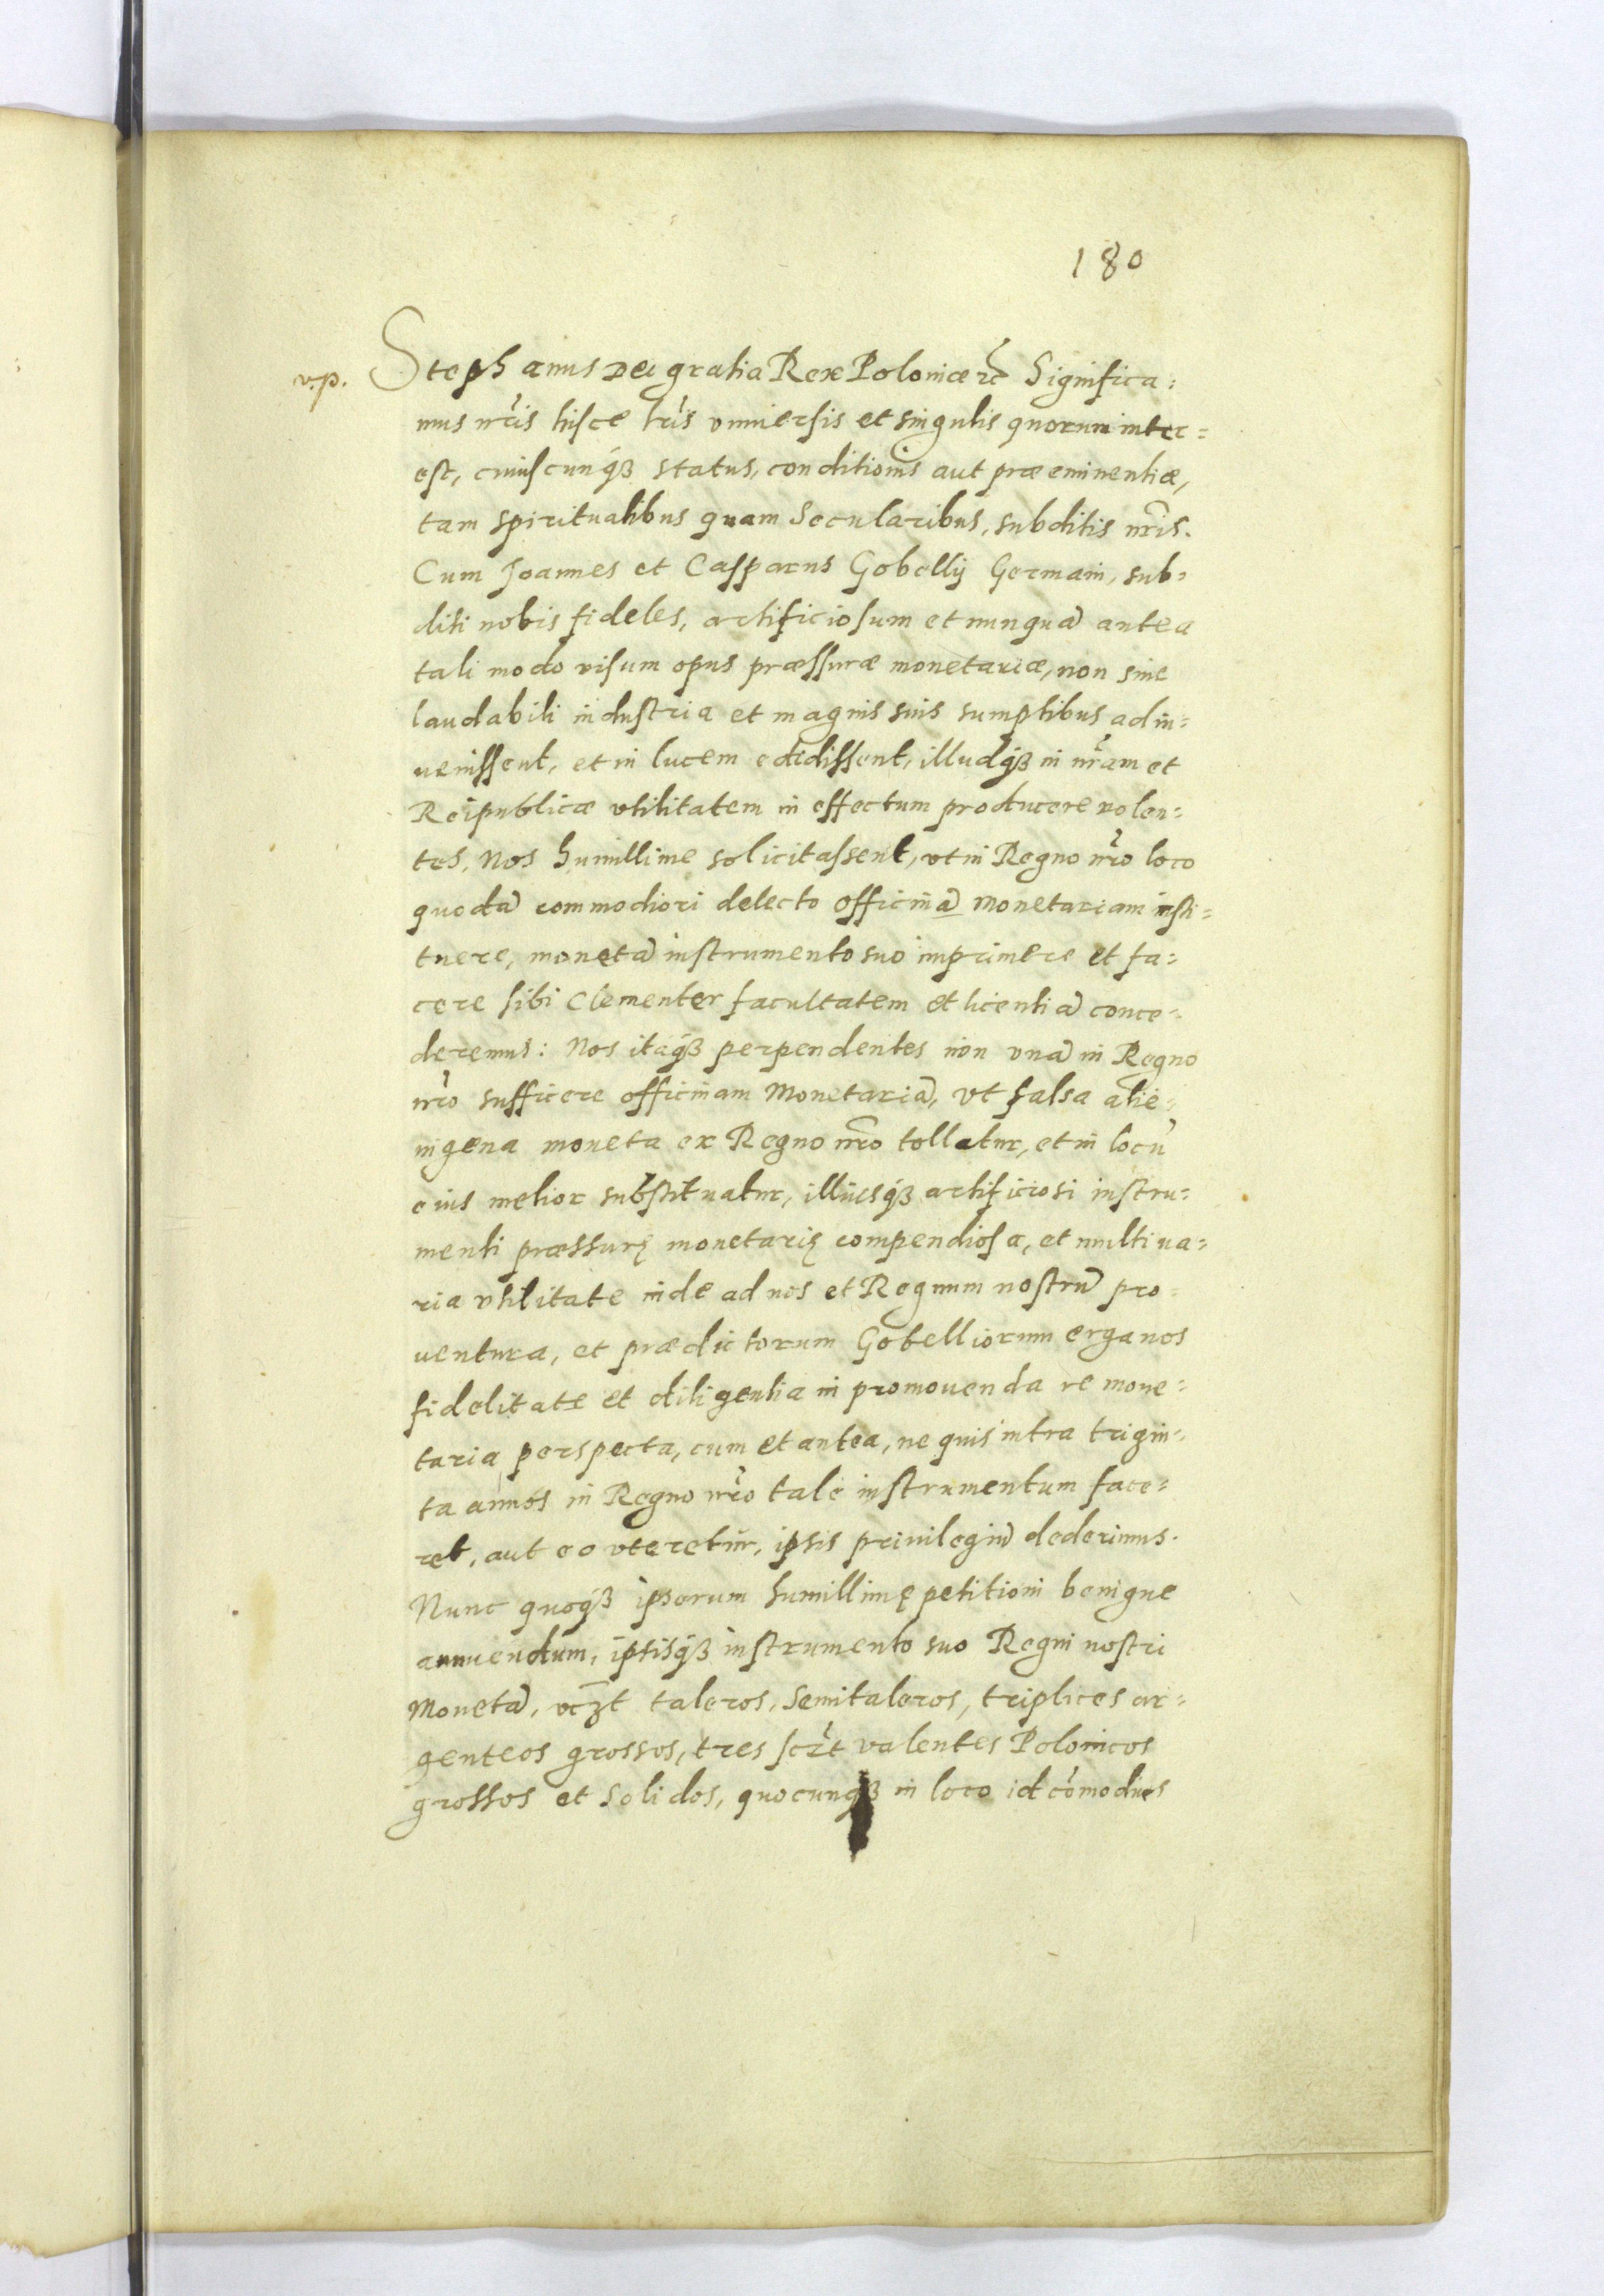 180
v.p.
Stephanus Dei gratia Rex Poloniæ etc̃ Significa=
mus nr̃is hisce lr̃is vniuersis et singulis quorum inter=
est, cuiuscunqꝫ status, conditionis aut præeminentiæ,
tam spiritualibus quam Secularibus, subditis nr̃is.
Cum Joannes et Casparus Gobellij Germani, sub=
diti nobis fideles, artificiosum et nunquã antea
tali modo visum opus præssuræ monetariæ, non sine
laudabili industria et magnis suis sumptibus adin=
uenissent, et in lucem edidissent, illudqꝫ in nr̃am et
Reipublicæ vtilitatem in effectum producere volen=
tes, Nos humillime solicitassent, vt in Regno nr̃o loco
quodã commodiori delecto officinã Monetariam insti=
tuere, monetã instrumento suo imprimere et fa=
cere sibi Clementer facultatem et licentiã conce=
deremus: Nos itaqꝫ perpendentes non vnã in Regno
nr̃o sufficere officinam Monetariã, vt falsa alie=
nigena moneta ex Regno nr̃o tollatur, et in locũ
eius melior substituatur, illiusqꝫ artificiosi instru=
menti præssurę monetarię compendiosa, et multiua=
ria vtilitate inde ad nos et Regnum nostrũ pro=
uentura, et prædictorum Gobelliorum erga nos
fidelitate et diligentia in promouenda re mone=
taria perspecta, cum et antea, ne quis intra trigin=
ta annos in Regno nr̃o tale instrumentum face=
ret, aut eo vteretur, ipsis priuilegiũ dederimus.
Nunc quoqꝫ ipsorum humillimę petitioni benigne
annuendum, ipsisqꝫ instrumento suo Regni nostri
Monetã, vcꝫt taleros, Semitaleros, triplices ar=
genteos grossos, tres scꝫt valentes Polonicos
grossos et Solidos, quocunqꝫ in loco id com̃odius